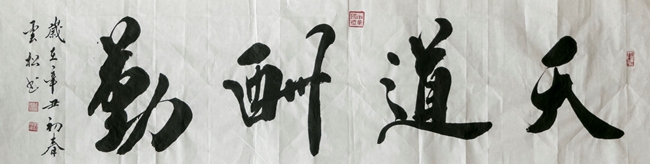 天道酬勤
歲在辛丑初春
雲松書